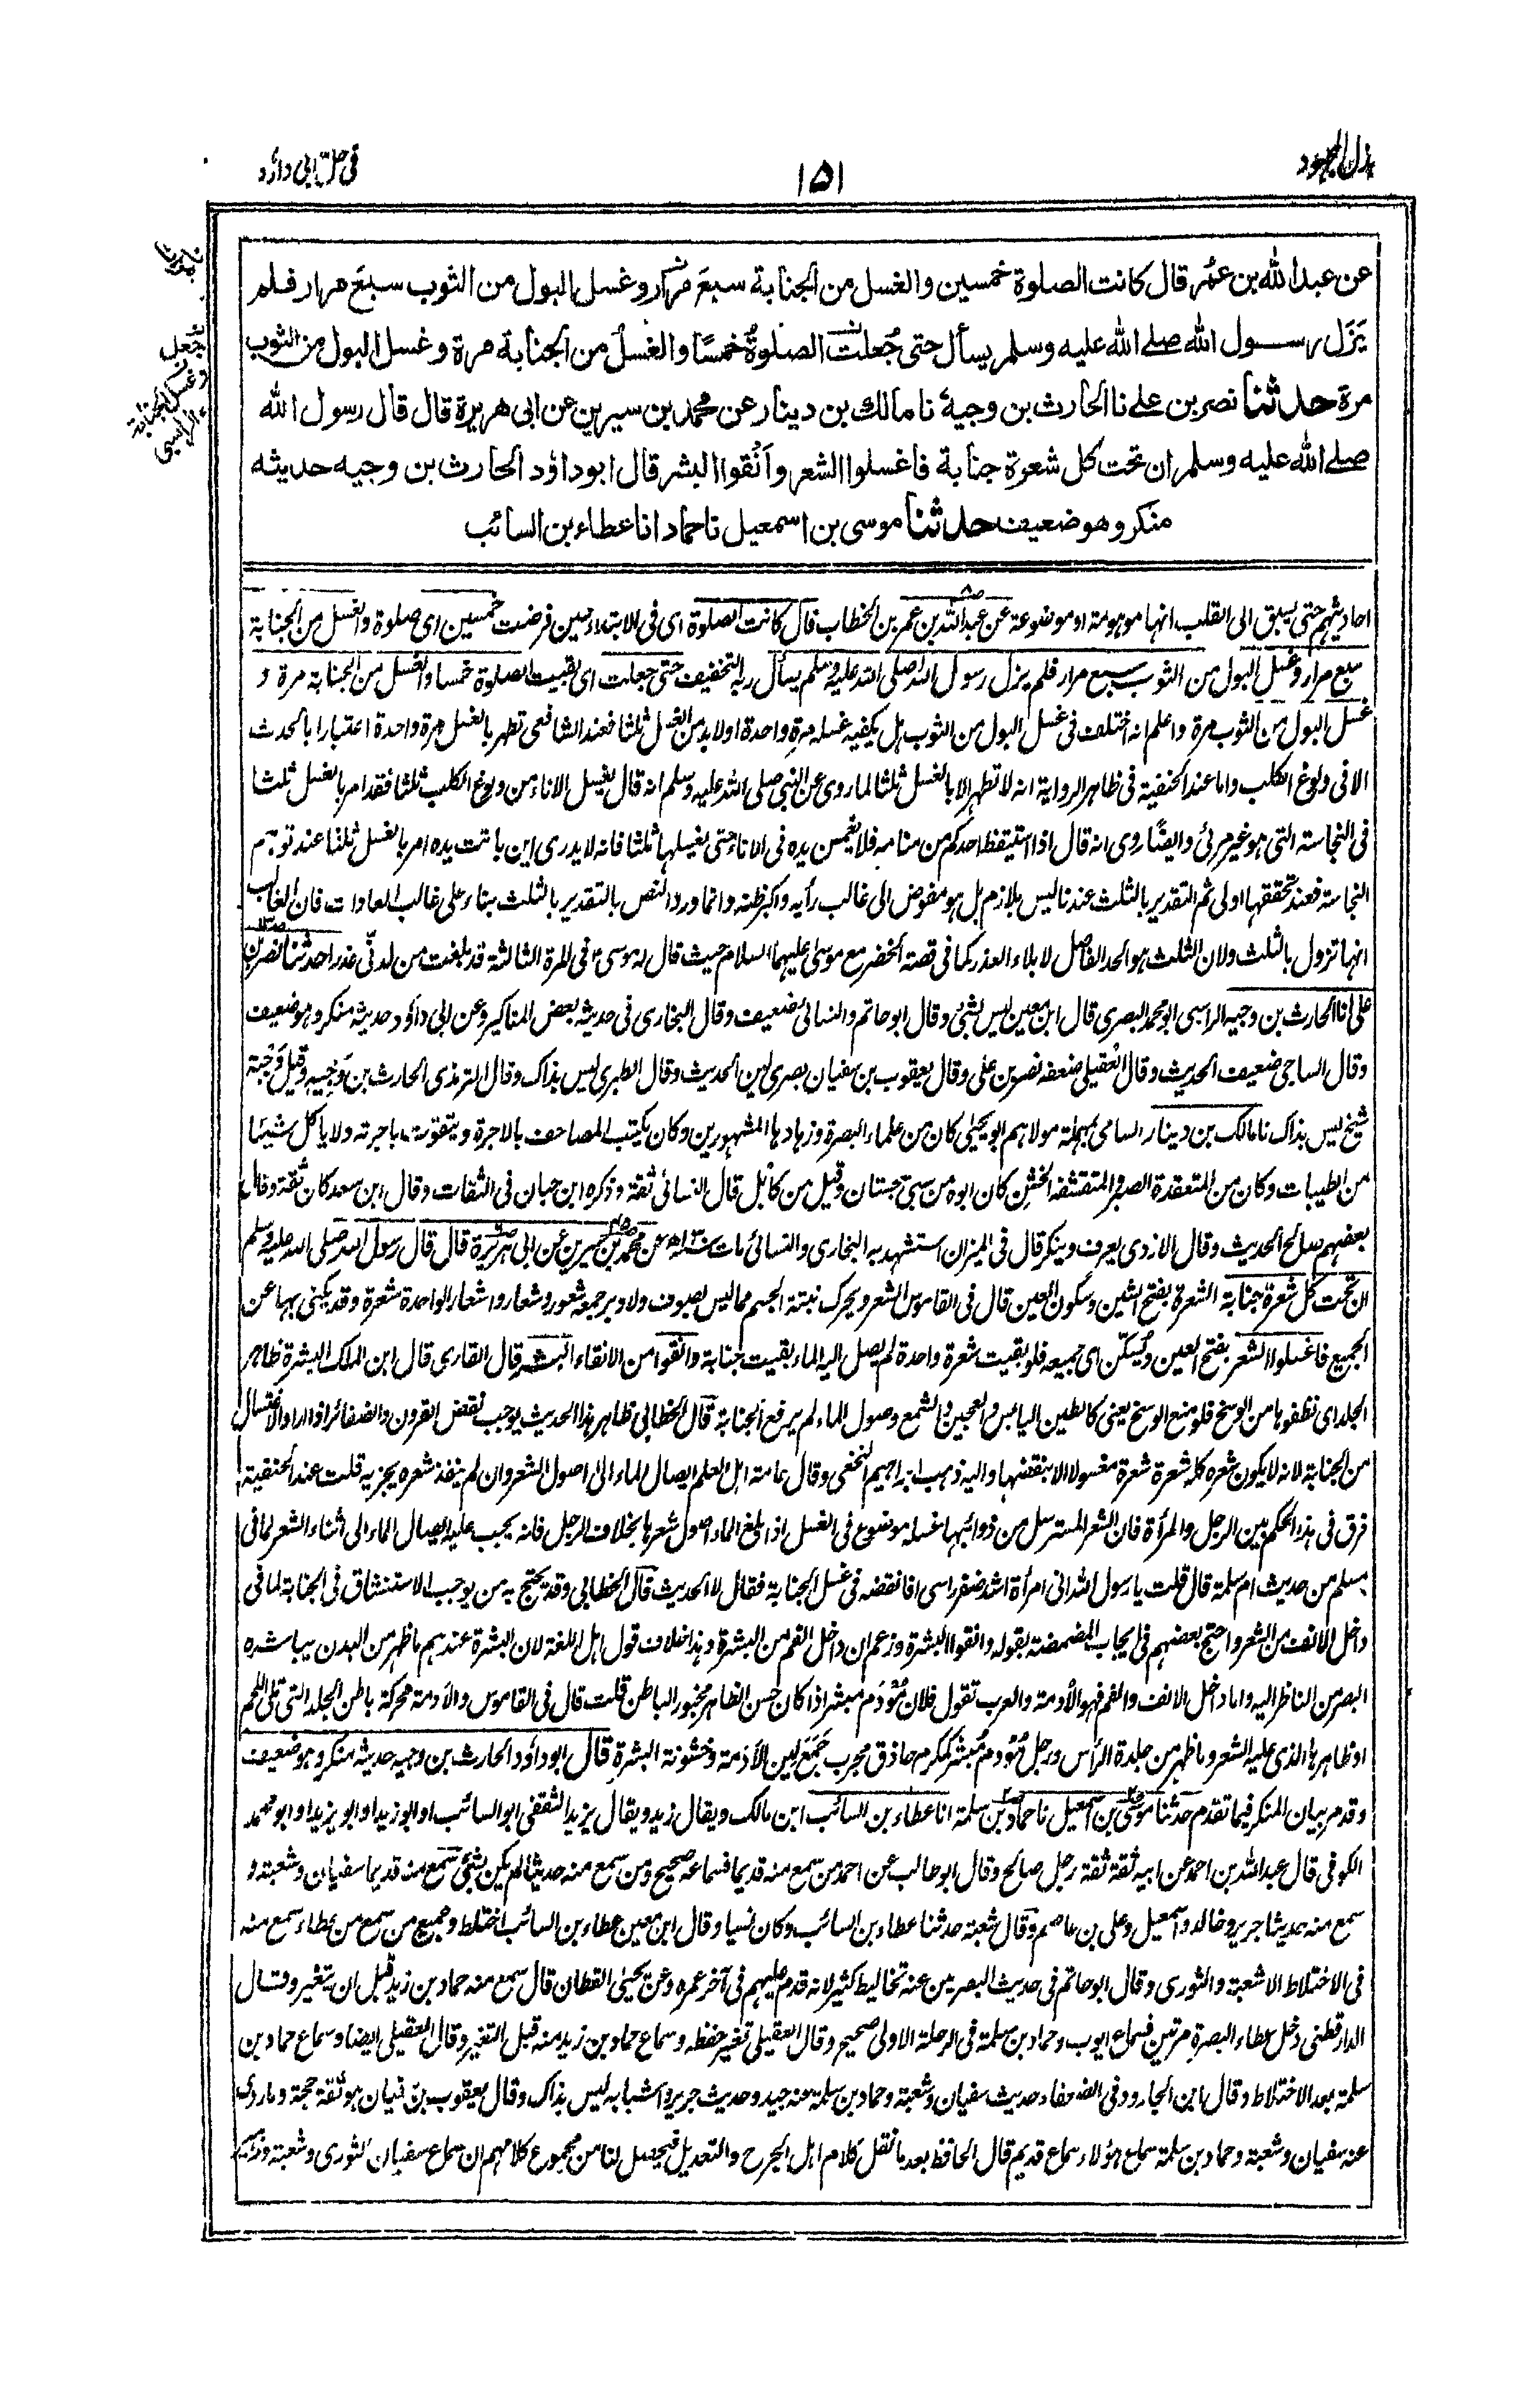 بذل المجهود
١٥١
فى حل ابى داؤد
عن عبد الله بن عمر قال كانت الصلوة خمسين والغسل من الجنابة سبع مرار وغسل البول من الثوب سبع مرار فلم
يزل رسول الله صلے الله عليه وسلم يسأل حتى جُعلت الصلوةُ خمسًا والغسلُ من الجنابة مرة وغسل البول من الثوب
مرة حدثنا نصر بن علے نا الحارث بن وجيه نا مالك بن دينار عن محمد بن سيرين عن ابى هريرة قال قال رسول الله
صلے الله عليه وسلم ان تحت كل شعرة جنابة فاغسلوا الشعر وأنقوا البشر قال ابو داؤد الحارث بن وجيه حديثه
منكر وهو ضعيف حدثنا موسى بن اسمعيل نا حماد انا عطاء بن السائب
تجعل
وغسل الجنابة
الراسبى
احاديثهم حتى يسبق الى القلب انها موهومة او موضوعة عن عبد الله بن عمر بن الخطاب قال كانت الصلوة اى فى الابتداء حين فرضت خمسين اى صلوة والغسل من الجنابة
سبع مرار وغسل البول من الثوب سبع مرار فلم يزل رسول الله صلى الله عليه وسلم يسأل ربه التخفيف حتى جعلت اى بقيت الصلوة خمسا والغسل من الجنابة مرة و
غسل البول من الثوب مرة واعلم انه اختلف فى غسل البول من الثوب هل يكفيه غسله مرة واحدة او لا بد من الغسل ثلثا فعند الشافعى تطهر بالغسل مرة واحدة اعتبارا بالحدث
الا فى ولوغ الكلب واما عند الحنفية فى ظاهر الرواية انه لا تطهر الا بالغسل ثلثا لما روى عن النبى صلى الله عليه وسلم انه قال يغسل الاناء من ولوغ الكلب ثلثا فقد امر بالغسل ثلثا
فى النجاسة التى هو غير مرئى وايضًا روى انه قال اذا استيقظ احدكم من منامه فلا يغمسن يده فى الاناء حتى يغسلها ثلثا فانه لا يدرى اين باتت يده امر بالغسل ثلثا عند توهم
النجاسة فعند تحققها اولى ثم التقدير بالثلث عندنا ليس بلازم بل هو مفوض الى غالب رأيه واكبر ظنه وانما ورد النص بالتقدير بالثلث بناء على غالب العادات فان الغالب
انها تزول بالثلث ولان الثلث هو الحد الفاصل لابلاء العذر كما فى قصة الخضر مع موسى عليهما السلام حيث قال له موسى فى المرة الثالثة قد بلغت من لدنّى عذرا حدثنا نصر بن
على انا الحارث بن وجيه الراسبى ابو محمد البصرى قال ابن معين ليس بشئ وقال ابو حاتم والنسائى ضعيف وقال البخارى فى حديثه بعض المناكير وعن ابى داؤد حديثه منكر وهو ضعيف
وقال الساجى ضعيف الحديث وقال العقيلى ضعفه نصر بن على وقال يعقوب بن سفيان بصرى لين الحديث وقال الطبرى ليس بذاك وقال الترمذى الحارث بن وَجِيه وقيل وَجْبة
شيخ ليس بذاك نا مالك بن دينار السامى بمهملة مولاهم ابو يحيٰى كان من علماء البصرة وزهادها المشهورين وكان يكتب المصاحف بالاجرة ويتقوت باجرته ولا يأكل شيئا
من الطيبات وكان من المتعقدة الصبر والمتقشفة الخشن كان ابوه من سبى سجستان وقيل من كابل قال النسائى ثقة وذكره ابن حبان فى الثقات وقال ابن سعد كان ثقة وقال
بعضهم صالح الحديث وقال الازدى يعرف وينكر قال فى الميزان استشهد به البخارى والنسائى مات سنة عن محمد بن سيرين عن ابى هريرة قال قال رسول الله صلى الله عليه وسلم
ان تحت كل شعرة جنابة الشعرة بفتح الشين وسكون العين قال فى القاموس الشعر ويحرك نبتة الجسم مما ليس بصوف ولا وبر جمعه شعور وشعار واشعار الواحدة شعرة وقد يكنى بها عن
الجميع فاغسلوا الشعر بفتح العين ويُسكّن اى جميعه فلو بقيت شعرة واحدة لم يصل اليه الماء بقيت جنابة وانقوا من الانقاء البشر قال القارى قال ابن الملك البشرة ظاهر
الجلد اى نظفوها من الوسخ فلو منع الوسخ يعنى كالطين اليابس والعجين والشمع وصول الماء لم يرفع الجنابة قال الخطابى ظاهر هذا الحديث يوجب نقض القرون والضفائر اذا اراد الاغتسال
من الجنابة لانه لا يكون شعره كله شعرة شعرة مغسولا الا بنقضها واليه ذهب ابراهيم النخعى وقال عامة اهل العلم ايصال الماء الى اصول الشعر وان لم ينفذ شعره يجزيه قلت عند الحنفية
فرق فى هذا الحكم بين الرجل والمرأة فان الشعر المسترسل من ذوائبها غسله موضوع فى الغسل اذا بلغ الماء اصول شعرها بخلاف الرجل فانه يجب عليه ايصال الماء الى اثناء الشعر لما فى
مسلم من حديث ام سلمة قال قلت يا رسول الله انى امرأة اشد ضفر راسى افانقضه فى غسل الجنابة فقال لا الحديث قال الخطابى وقد يحتج به من يوجب الاستنشاق فى الجنابة لما فى
داخل الانف من الشعر واحتج بعضهم فى ايجاب المضمضة بقوله وانقوا البشرة وزعم ان داخل الفم من البشرة وهذا خلاف قول اهل اللغة لان البشرة عندهم ما ظهر من البدن يباشره
البصر من الناظر اليه واما داخل الانف والفم فهو الأدمة والعرب تقول فلان مُؤْدَم مبشر اذا كان حسن الظاهر مخبور الباطن قلت قال فى القاموس والأدمة محركة باطن الجلد التى تلى اللحم
او ظاهرها الذى عليه الشعر وما ظهر من جلدة الرأس ورجل مُؤدم مُبشر كمكرم حاذق مجرب جَمَعَ لين الأدمة وخشونة البشرة قال ابو داؤد الحارث بن وجيه حديثه منكر وهو ضعيف
وقد مر بيان المنكر فيما تقدم حدثنا موسى بن اسمعيل نا حماد بن سلمة انا عطاء بن السائب ابن مالك ويقال زيد ويقال يزيد الثقفى ابو السائب او ابو زيد او ابو يزيد او ابو محمد
الكوفى قال عبد الله بن احمد عن ابيه ثقة ثقة رجل صالح وقال ابو طالب عن احمد من سمع منه قديما فسماعه صحيح ومن سمع منه حديثا لم يكن بشئ سمع منه قديما سفيان وشعبة و
سمع منه حديثا جرير وخالد واسمعيل وعلى بن عاصم وقال شعبة حدثنا عطاء بن السائب وكان نسيا وقال ابن معين عطاء بن السائب اختلط وجميع من سمع من عطاء سمع منه
فى الاختلاط الا شعبة والثورى وقال ابو حاتم فى حديث البصريين عنه تخاليط كثير لانه قدم عليهم فى آخر عمره وعن يحيٰى القطان قال سمع منه حماد بن زيد قبل ان يتغير وقال
الدارقطنى دخل عطاء البصرة مرتين فسماع ايوب وحماد بن سلمة فى الرحلة الاولى صحيح وقال العقيلى تغير حفظه وسماع حماد بن زيد منه قبل التغير وقال العقيلى ايضا وسماع حماد بن
سلمة بعد الاختلاط وقال ابن الجارود فى الضعفاء حديث سفيان وشعبة وحماد بن سلمة عنه جيد وحديث جرير واشباهه ليس بذاك وقال يعقوب بن سفيان هو ثقة حجة وما روى
عنه سفيان وشعبة وحماد بن سلمة سماع هؤلاء سماع قديم قال الحافظ بعد ما نقل كلام اهل الجرح والتعديل فيحصل لنا من مجموع كلامهم ان سماع سفيان الثورى وشعبة وزهير